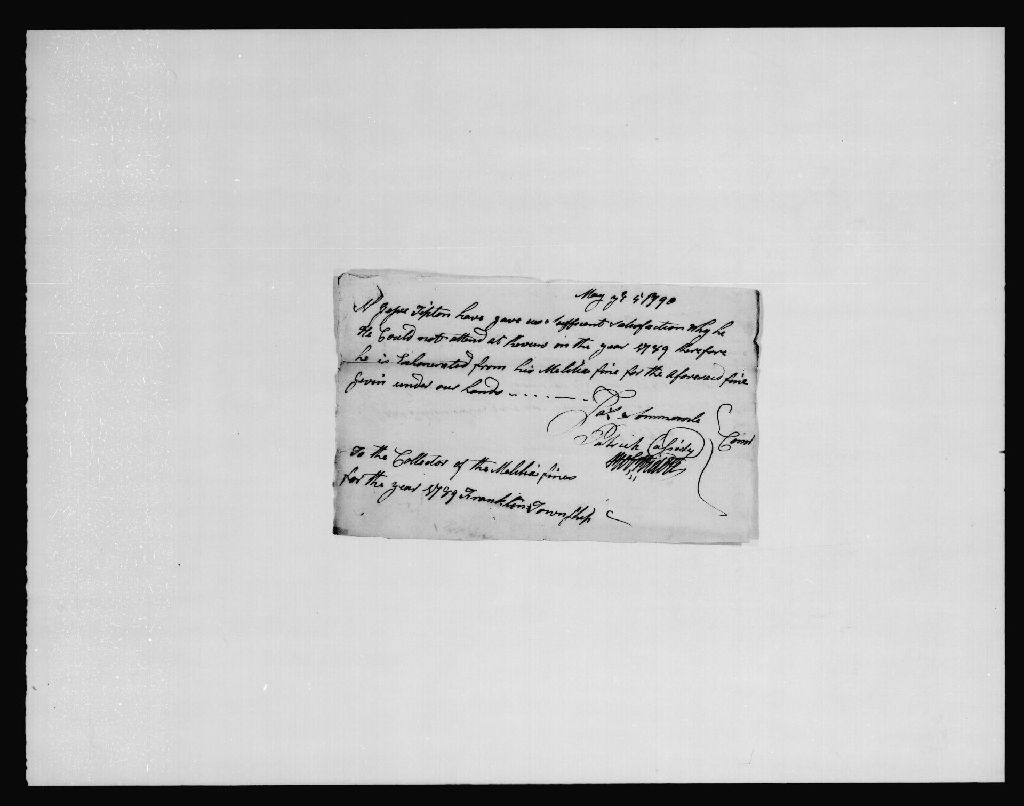 May ye 5 1790
Jesse Tipton have gave us sufficent satisfaction why he
He Could not attend at Revews on the year 1789 therefore
he is Exhonerated from his Melitia fine for the aforesaid fine
Given under our hands
Patrick Cassidy
To the Collector of the Melitia fines
for the year 1789 Franklin Township